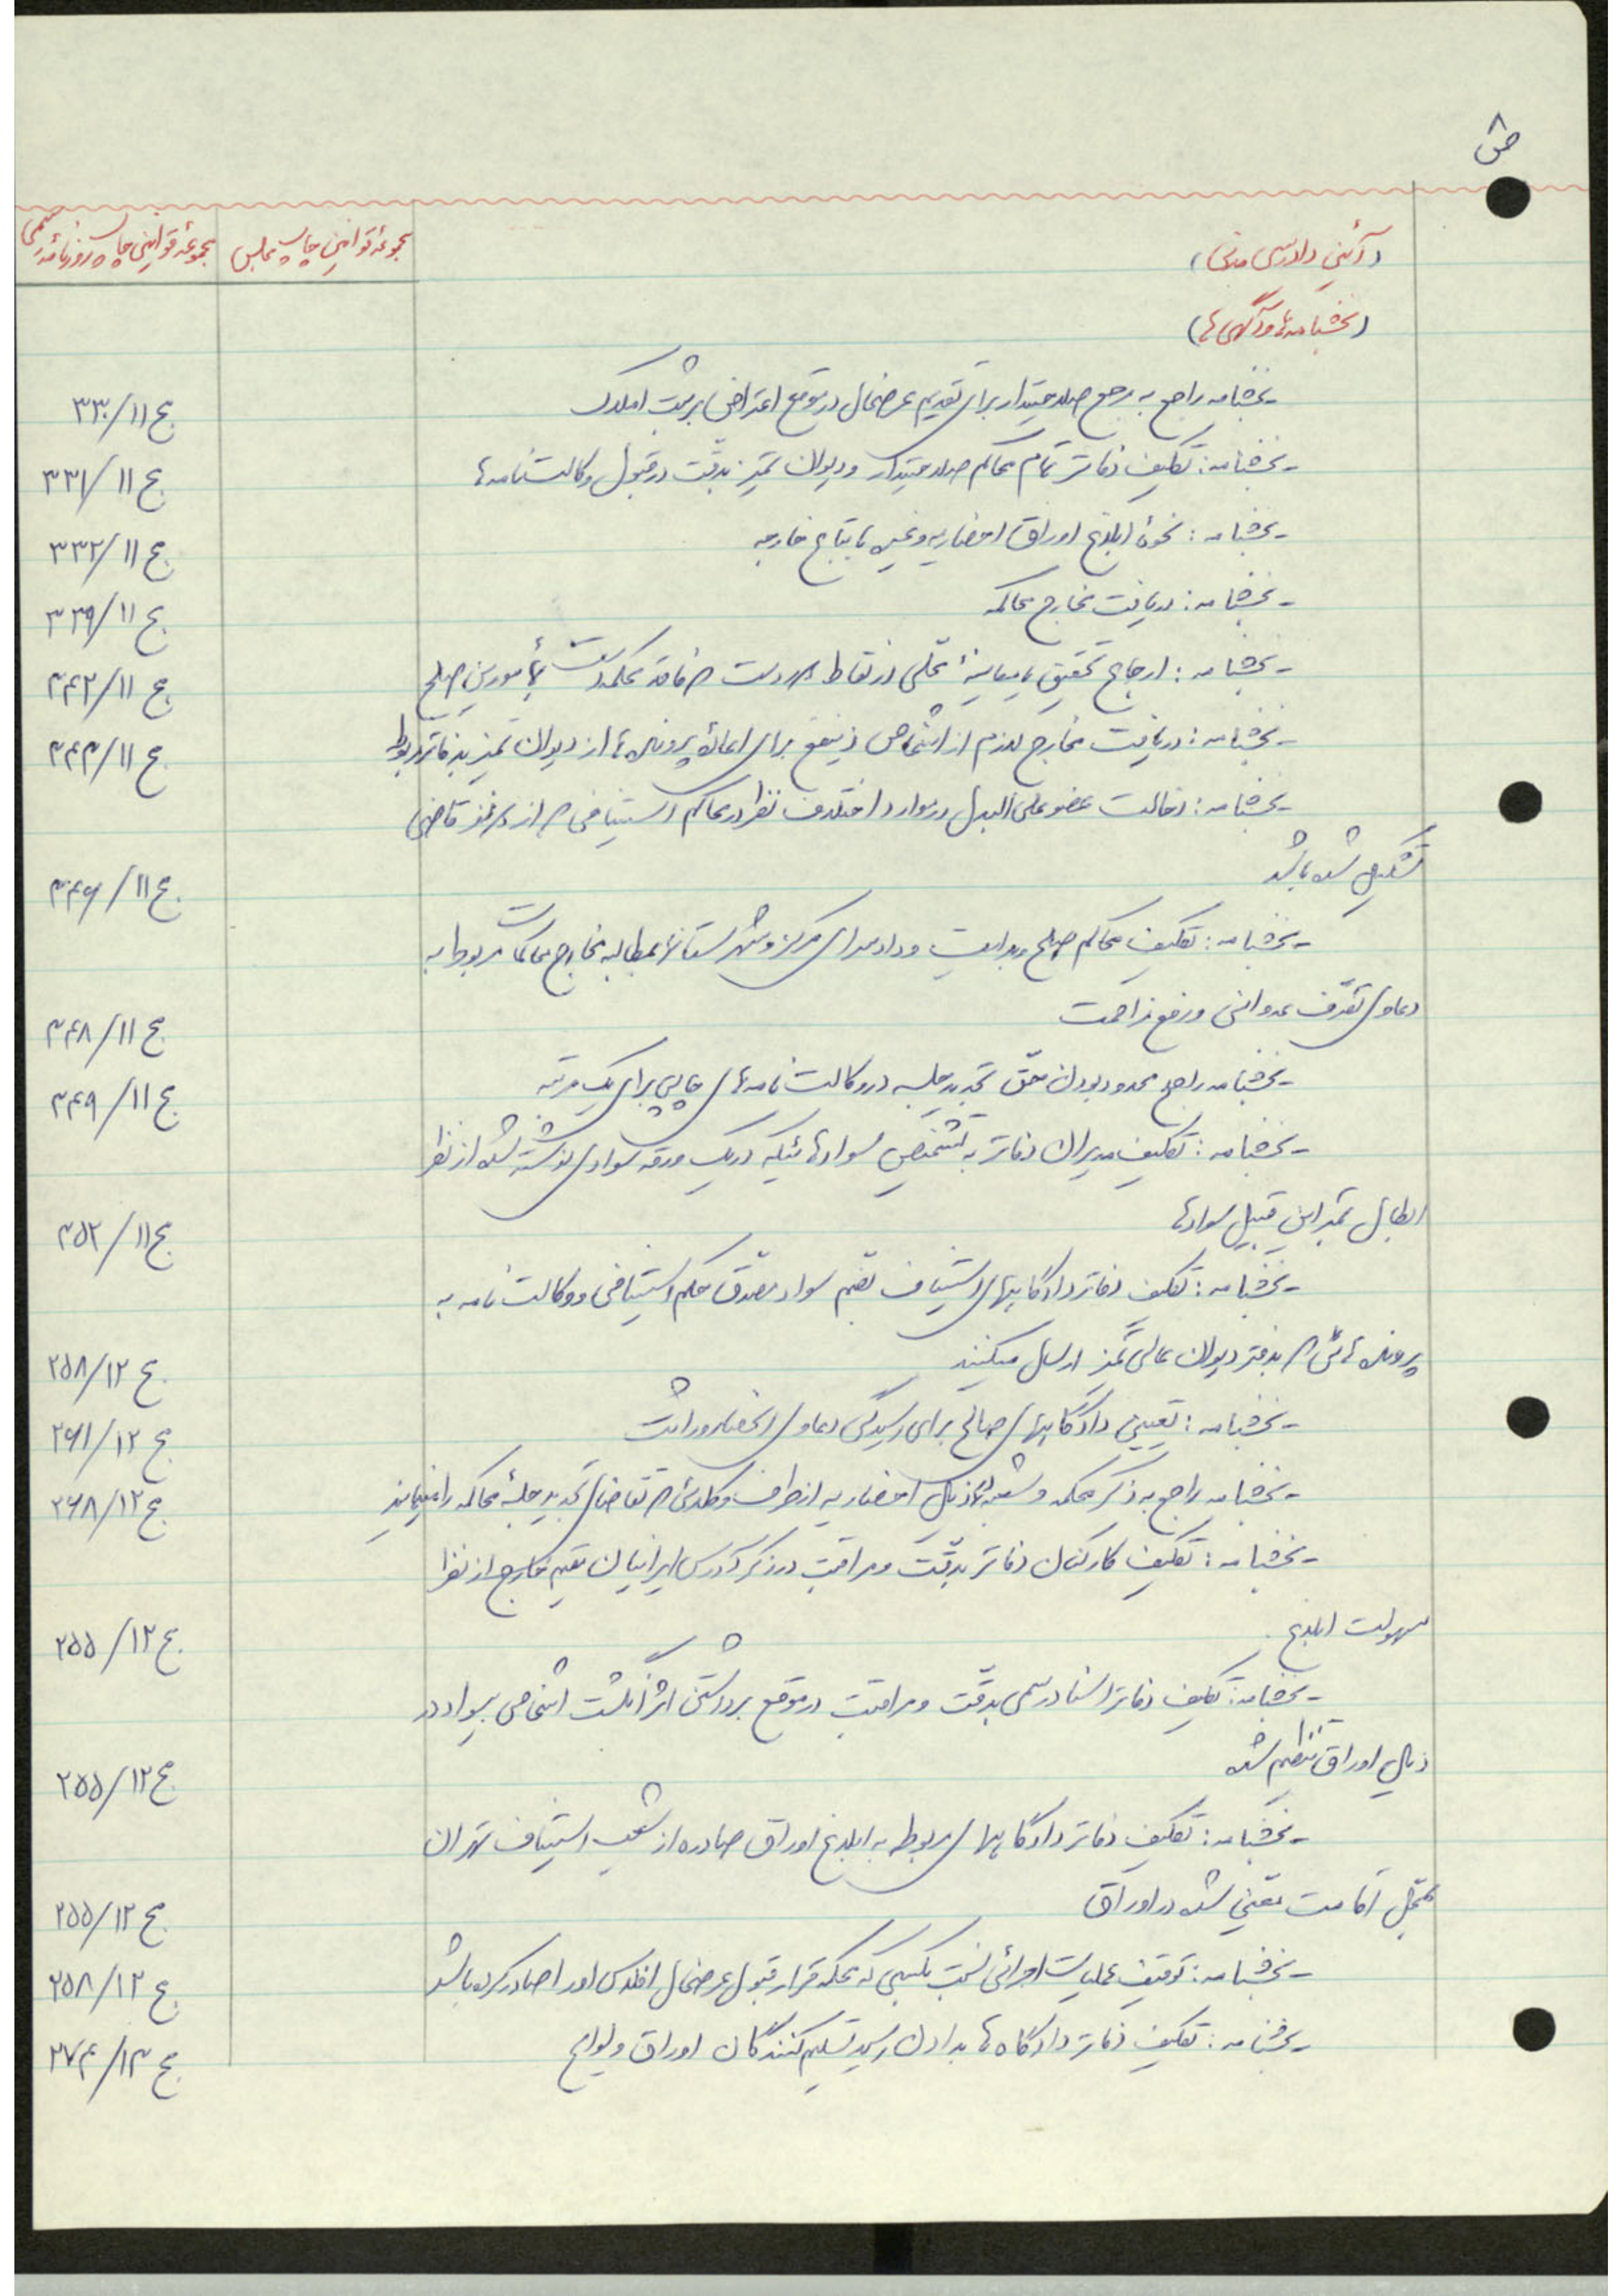 ص ۸
(آئین دادرسی مدنی)
مجموعهٔ قوانین چاپ مجلس
مجموعهٔ قوانین چاپ روزنامهٔ رسمی
(بخشنامه‌ها و آگهی‌ها)
- بخشنامه راجع به مرجع صلاحیتدار برای تقدیم عرضحال در موقع اعتراض بر ثبت املاک
ج ۱۱/۳۳۰
- بخشنامه: تکلیف دفاتر تمام محاکم صلاحیتدار و دیوان تمیز بدقت در قبول وکالت‌نامه‌ها
ج ۱۱/۳۳۱
- بخشنامه: نحوهٔ ابلاغ اوراق احضاریه و غیره باتباع خارجه
ج ۱۱/۳۳۲
- بخشنامه: دریافت مخارج محاکمه
ج ۱۱/۳۳۹
- بخشنامه: ارجاع تحقیق یا معاینهٔ محلی در نقاط دور دست که فاقد محکمه است بمأمورین صلح
ج ۱۱/۳۴۲
- بخشنامه: دریافت مخارج لازم از اشخاص ذینفع برای اعادهٔ پرونده‌ها از دیوان تمیز بدفاتر مربوط
ج ۱۱/۳۴۳
- بخشنامه: دخالت عضو علی‌البدل در موارد اختلاف نظر در محاکم استینافی که از دو نفر قاضی
تشکیل شده باشد
ج ۱۱/۳۴۶
- بخشنامه: تکلیف محاکم صلح و بدایت و دادسرای مرکز و شهرستانها بمطالبه مخارج محاکمات مربوط به
دعاوی تصرف عدوانی و رفع مزاحمت
ج ۱۱/۳۴۸
- بخشنامه راجع محدود بودن حق تجدید جلسه در وکالت‌نامه‌های چاپی برای یک مرتبه
ج ۱۱/۳۴۹
- بخشنامه: تکلیف مدیران دفاتر به تشخیص سوادهائیکه در یک ورقه سوادی نوشته شده از نظر
ابطال تمبر این قبیل سوادها
ج ۱۱/۳۵۲
- بخشنامه: تکلیف دفاتر دادگاههای استیناف بضم سواد مصدق حکم استینافی و وکالت‌نامه به
پرونده‌هائی که بدفتر دیوان عالی تمیز ارسال میکنند
ج ۱۲/۲۵۸
- بخشنامه: تعیین دادگاههای صالح برای رسیدگی دعاوی انحصار وراثت
ج ۱۲/۲۶۱
- بخشنامه راجع به ذکر محکمه و شعبه در ذیل احضاریه از طرف وکلائی که تقاضای تجدید جلسهٔ محاکمه را مینمایند
ج ۱۲/۲۶۸
- بخشنامه: تکلیف کارکنان دفاتر بدقت و مراقبت در ذکر آدرس ایرانیان مقیم خارج از نظر
سهولت ابلاغ
ج ۱۲/۲۵۵
- بخشنامه: تکلیف دفاتر اسناد رسمی بدقت و مراقبت در موقع برداشتن اثر انگشت اشخاص بیسواد در
ذیل اوراق تنظیم شده
ج ۱۲/۲۵۵
- بخشنامه: تکلیف دفاتر دادگاههای مربوط به ابلاغ اوراق صادره از شعب استیناف تهران
بمحل اقامت تعیین شده در اوراق
ج ۱۲/۲۵۵
- بخشنامه: توقیف عملیات اجرائی نسبت بکسی که محکمه قرار قبول عرضحال افلاس او را صادر کرده باشد
ج ۱۲/۲۵۸
- بخشنامه: تکلیف دفاتر دادگاه‌ها بدادن رسید تسلیم کنندگان اوراق و لوایح
ج ۱۳/۲۷۴